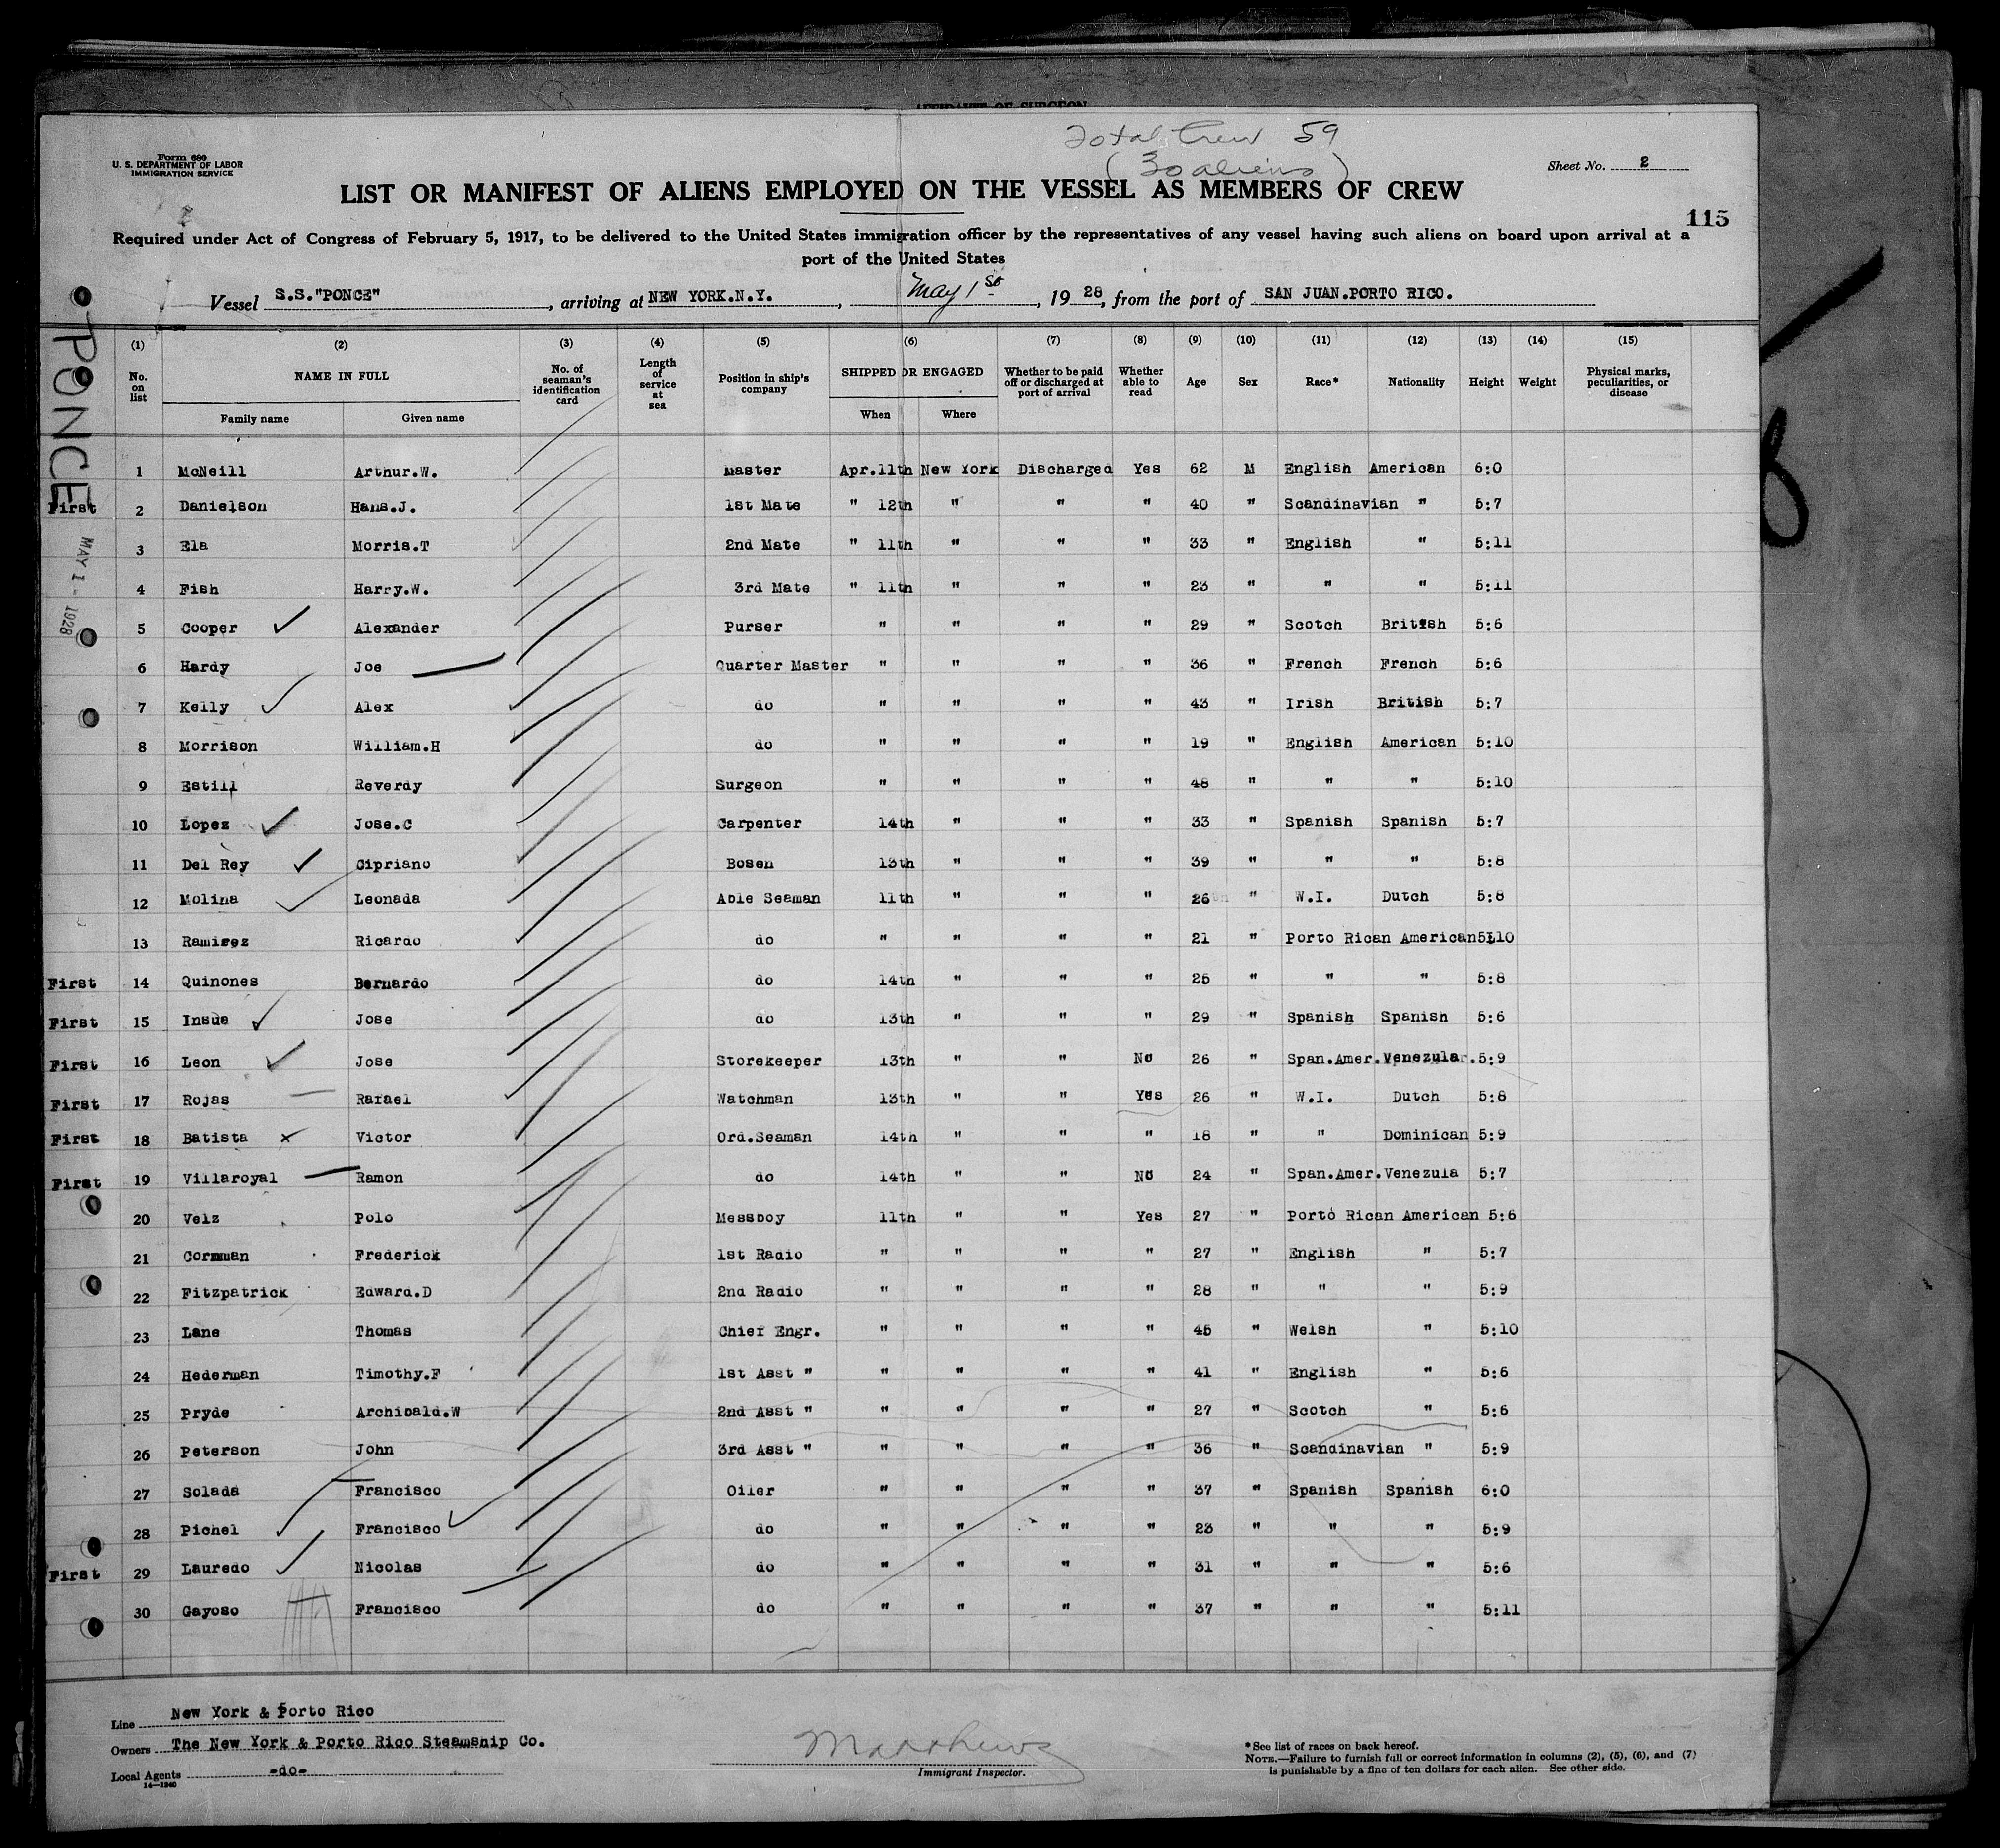 AFFIDAVIT OF SURGEON
Total Crew 59
(30 aliens)
Form 680
U. S. DEPARTMENT OF LABOR
IMMIGRATION SERVICE
Sheet No. 2
LIST OR MANIFEST OF ALIENS EMPLOYED ON THE VESSEL AS MEMBERS OF CREW
115
Required under Act of Congress of February 5, 1917, to be delivered to the United States immigration officer by the representatives of any vessel having such aliens on board upon arrival at a
port of the United States
Vessel S.S."PONCE", arriving at NEW YORK.N.Y., May 1st, 1928, from the port of SAN JUAN.PORTO RICO.
PONCE
MAY 1 - 1928
(1) (2) (3) (4) (5) (6) (7) (8) (9) (10) (11) (12) (13) (14) (15)
No. on list NAME IN FULL No. of seaman's identification card Length of service at sea Position in ship's company SHIPPED OR ENGAGED Whether to be paid off or discharged at port of arrival Whether able to read Age Sex Race* Nationality Height Weight Physical marks, peculiarities, or disease
Family name Given name When Where
1 McNeill Arthur.W. Master Apr.11th New York Discharged Yes 62 M English American 6:0
First 2 Danielson Hans.J. 1st Mate " 12th " " " 40 " Scandinavian " 5:7
3 Ela Morris.T 2nd Mate " 11th " " " 33 " English " 5:11
4 Fish Harry.W. 3rd Mate " 11th " " " 23 " " " 5:11
5 Cooper Alexander Purser " " " " 29 " Scotch British 5:6
6 Hardy Joe Quarter Master " " " " 36 " French French 5:6
7 Kelly Alex do " " " " 43 " Irish British 5:7
8 Morrison William.H do " " " " 19 " English American 5:10
9 Estill Reverdy Surgeon " " " " 48 " " " 5:10
10 Lopez Jose.C Carpenter 14th " " " 33 " Spanish Spanish 5:7
11 Del Rey Cipriano Bosen 13th " " " 39 " " " 5:8
12 Molina Leonada Able Seaman 11th " " " 26 " W.I. Dutch 5:8
13 Ramirez Ricardo do " " " " 21 " Porto Rican American 5:10
First 14 Quinones Bernardo do 14th " " " 25 " " " 5:8
First 15 Insua Jose do 13th " " " 29 " Spanish Spanish 5:6
First 16 Leon Jose Storekeeper 13th " " No 26 " Span.Amer. Venezular. 5:9
First 17 Rojas Rafael Watchman 13th " " Yes 26 " W.I. Dutch 5:8
First 18 Batista Victor Ord.Seaman 14th " " " 18 " " Dominican 5:9
First 19 Villaroyal Ramon do 14th " " No 24 " Span.Amer. Venezula 5:7
20 Velz Polo Messboy 11th " " Yes 27 " Porto Rican American 5:6
21 Cornman Frederick 1st Radio " " " " 27 " English " 5:7
22 Fitzpatrick Edward.D 2nd Radio " " " " 28 " " " 5:9
23 Lane Thomas Chief Engr. " " " " 45 " Welsh " 5:10
24 Hederman Timothy.F 1st Asst " " " " " 41 " English " 5:6
25 Pryde Archibald.W 2nd Asst " " " " " 27 " Scotch " 5:6
26 Peterson John 3rd Asst " " " " " 36 " Scandinavian " 5:9
27 Solada Francisco Oiler " " " " 37 " Spanish Spanish 6:0
28 Pichel Francisco do " " " " 23 " " " 5:9
First 29 Lauredo Nicolas do " " " " 31 " " " 5:6
30 Gayoso Francisco do " " " " 37 " " " 5:11
Line New York & Porto Rico
Owners The New York & Porto Rico Steamship Co.
Local Agents -do-
14-1240
Matthews
Immigrant Inspector.
*See list of races on back hereof.
NOTE.—Failure to furnish full or correct information in columns (2), (5), (6), and (7)
is punishable by a fine of ten dollars for each alien. See other side.